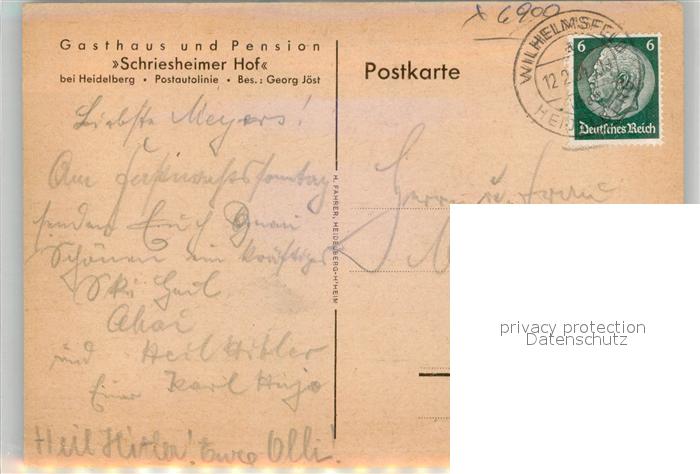 x 6900
Gasthaus und Pension
»Schriesheimer Hof«
bei Heidelberg • Postautolinie • Bes.: Georg Jöst
Postkarte
WILHELMSFELD
12.2.
HEI
6 6
Deutsches Reich
H. FAHRER, HEIDELBERG-H'HEIM
Liebste Meyers!
Am Fastnachtssonntag
senden Euch
Schönen ein kräftiges
Ski Heil
Ahoi
und Heil Hitler
Euer Karl Hugo
Heil Hitler! Eure Olli!
Herrn u. Frau
privacy protection
Datenschutz